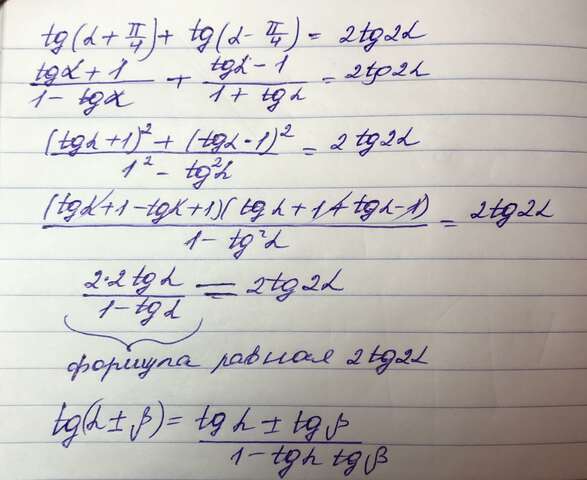 tg(α + π/4) + tg(α - π/4) = 2tg2α
(tgα + 1)/(1 - tgα) + (tgα - 1)/(1 + tgα) = 2tg2α
((tgα + 1)² + (tgα - 1)²)/(1² - tg²α) = 2tg2α
((tgα + 1 - tgα + 1)(tgα + 1 + tgα - 1))/(1 - tg²α) = 2tg2α
(2·2tgα)/(1 - tgα) = 2tg2α
формула равная 2tg2α
tg(α ± β) = (tgα ± tgβ)/(1 - tgα tgβ)